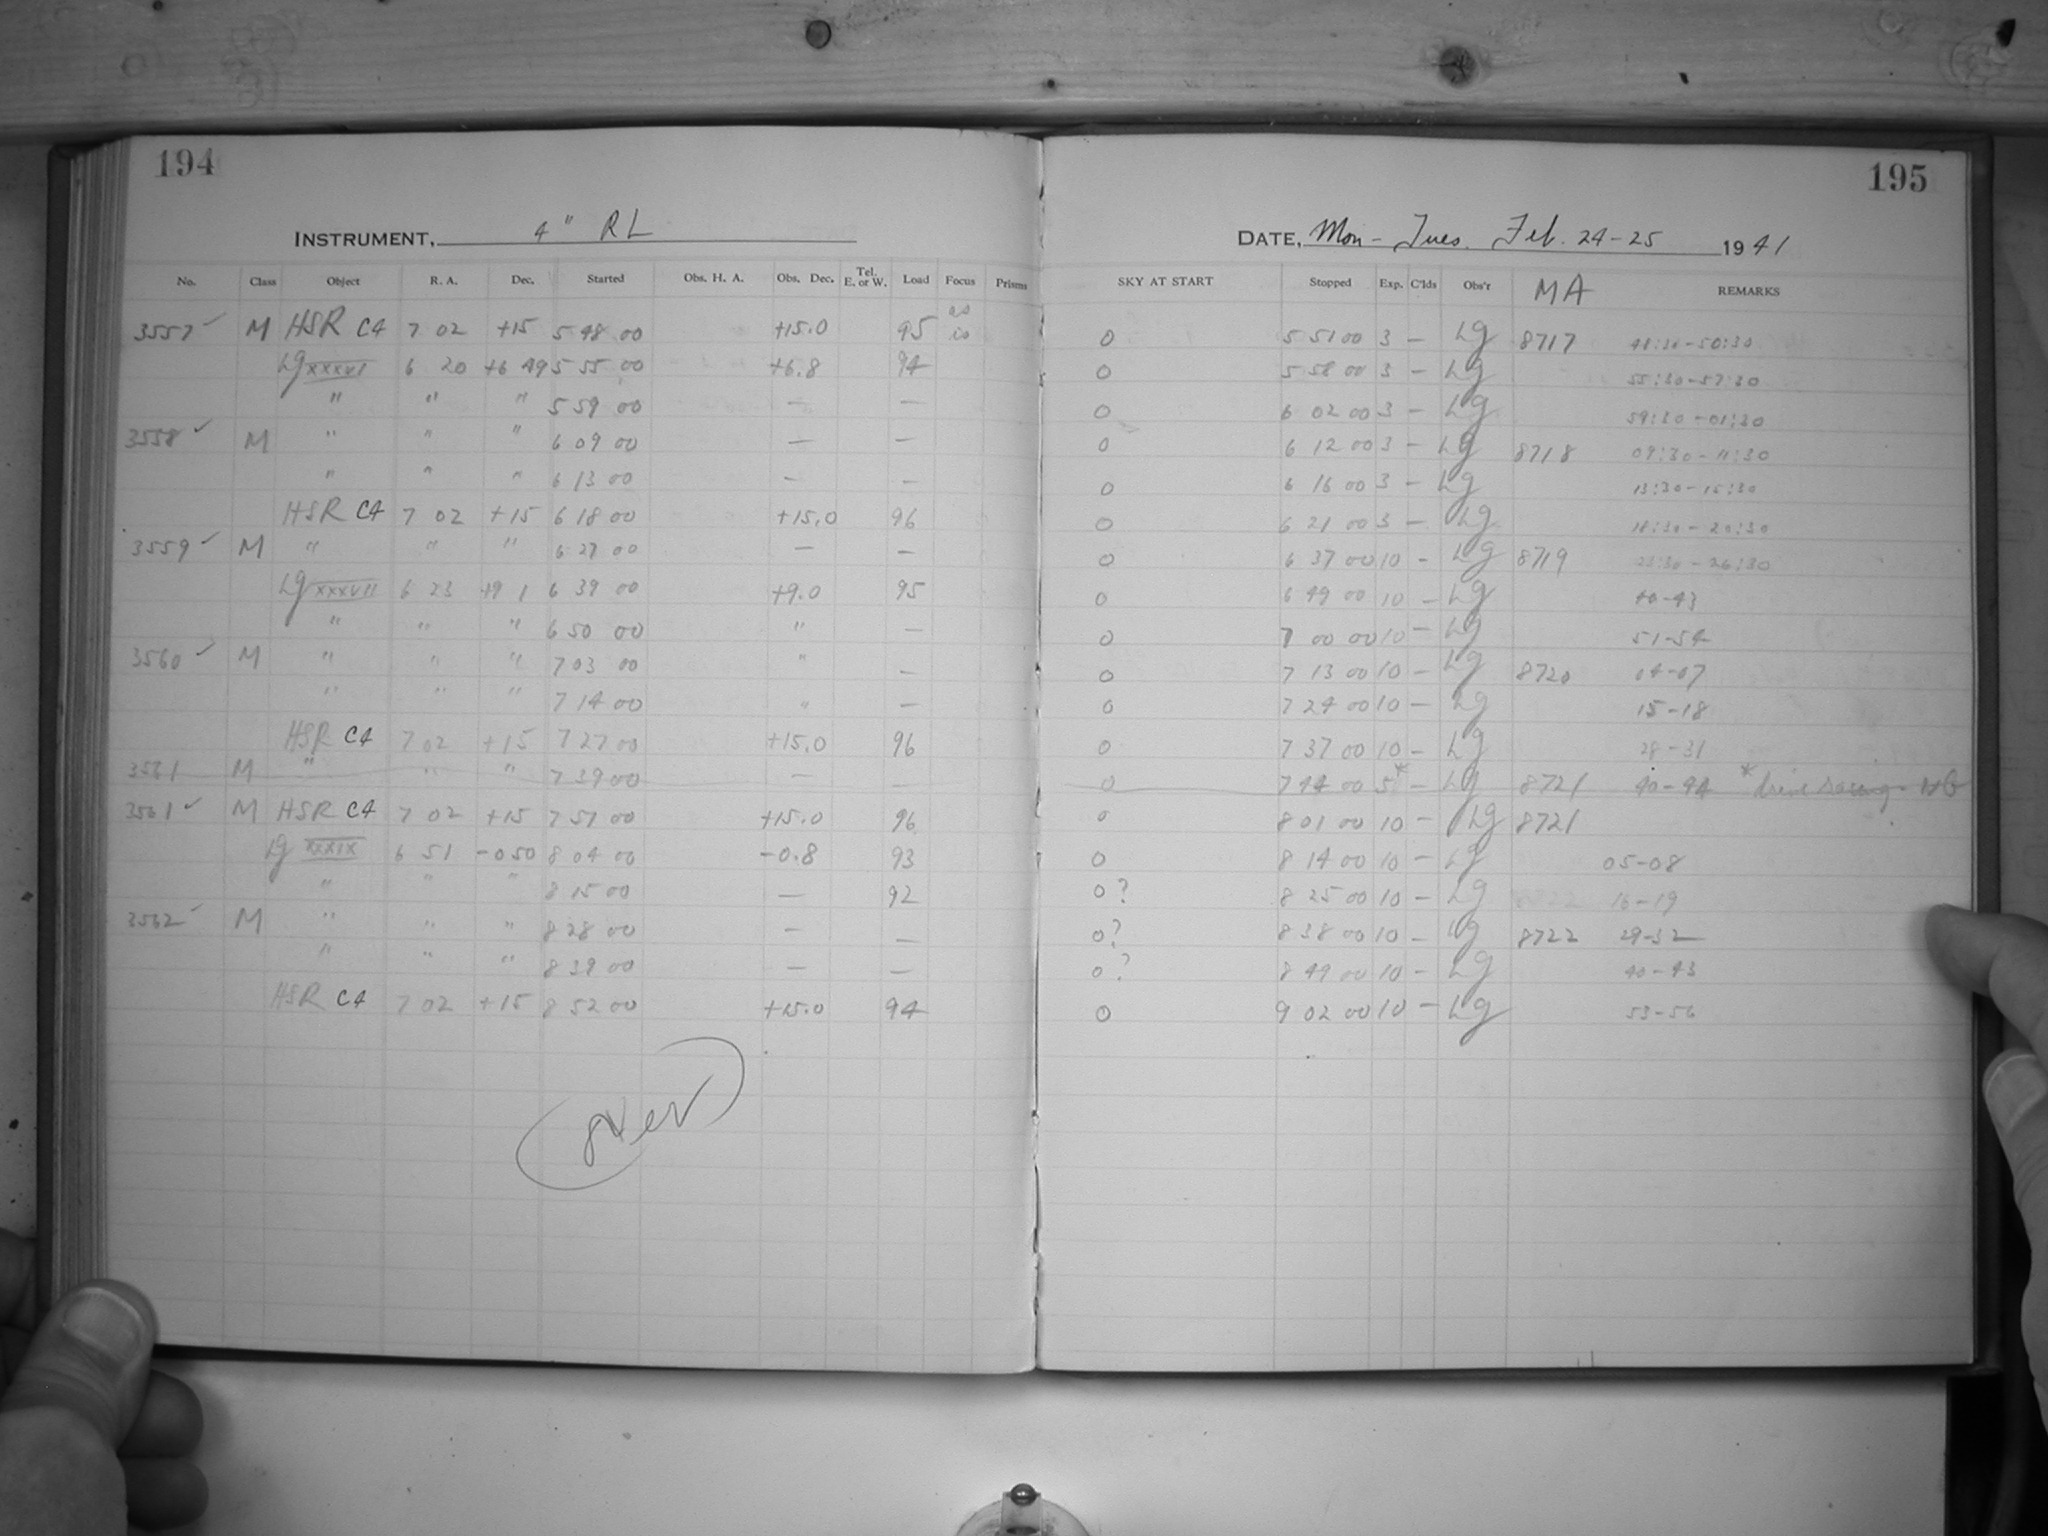 194
195
INSTRUMENT, 4" RL
DATE, Mon - Tues. Feb. 24-25 1941
No. Class Object R. A. Dec. Started Obs. H. A. Obs. Dec. Tel. E. or W. Load Focus Prisms SKY AT START Stopped Exp. C'lds Obs'r MA REMARKS
3557 ✓ M HSR C4 7 02 +15 5 48 00 +15.0 95 as is 0 5 51 00 3 - Lg 8717 48:30-50:30
Lg XXXVI 6 20 +6 49 5 55 00 +6.8 94 0 5 58 00 3 - Lg 55:30-57:30
" " " 5 59 00 — — 0 6 02 00 3 - Lg 59:30-01:30
3558 ✓ M " " " 6 09 00 — — 0 6 12 00 3 - Lg 8718 09:30-11:30
" " " 6 13 00 — — 0 6 16 00 3 - Lg 13:30-15:30
HSR C4 7 02 +15 6 18 00 +15.0 96 0 6 21 00 3 - Lg 18:30-20:30
3559 ✓ M " " " 6 27 00 — — 0 6 37 00 10 - Lg 8719 23:30-26:30
Lg XXXVII 6 23 +9 1 6 39 00 +9.0 95 0 6 49 00 10 - Lg 40-43
" " " 6 50 00 " — 0 7 00 00 10 - Lg 51-54
3560 ✓ M " " " 7 03 00 " — 0 7 13 00 10 - Lg 8720 04-07
" " " 7 14 00 " — 0 7 24 00 10 - Lg 15-18
HSR C4 7 02 +15 7 27 00 +15.0 96 0 7 37 00 10 - Lg 28-31
3561 M " " " 7 39 00 — — 0 7 44 00 5* - Lg 8721 40-44 * NG
3561 ✓ M HSR C4 7 02 +15 7 51 00 +15.0 96 0 8 01 00 10 - Lg 8721
Lg XXXIX 6 51 -0 50 8 04 00 -0.8 93 0 8 14 00 10 - Lg 05-08
" " " 8 15 00 — 92 0? 8 25 00 10 - Lg 16-19
3562 ✓ M " " " 8 28 00 — — 0? 8 38 00 10 - Lg 8722 29-32
" " " 8 39 00 — — 0? 8 49 00 10 - Lg 40-43
HSR C4 7 02 +15 8 52 00 +15.0 94 0 9 02 00 10 - Lg 53-56
over